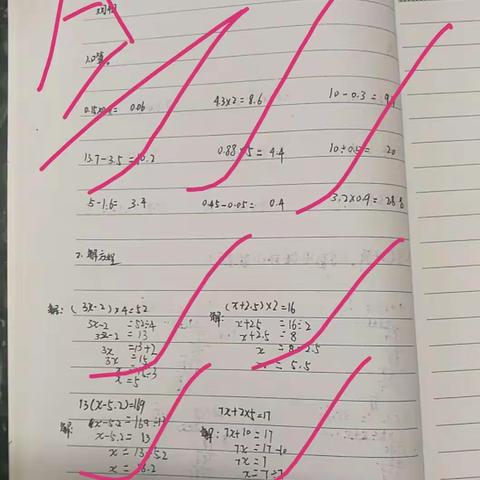 周一
1.口算.
= 0.06 4.3×2=8.6 10-0.3=
13.7-3.5= 0.88×5= 4.4 10÷0.5= 20
5-1.6= 3.4 0.45-0.05= 0.4 3.2×0.9=
2.解方程
解: (3x-2)×4=52 (x+2.5)×2=16
3x-2 =52÷4 解: x+2.5 =16÷2
3x-2 = 13 x+2.5 = 8
3x =13+2 x = 8-2.5
3x = 15 5.5
x=5
13(x-5.2)=169 7x+2×5=17
解: x-5.2 =169÷13 解: 7x+10=17
x-5.2= 13 7x=17-10
x = 13+5.2 7x=7
x = 18.2 x=7÷7